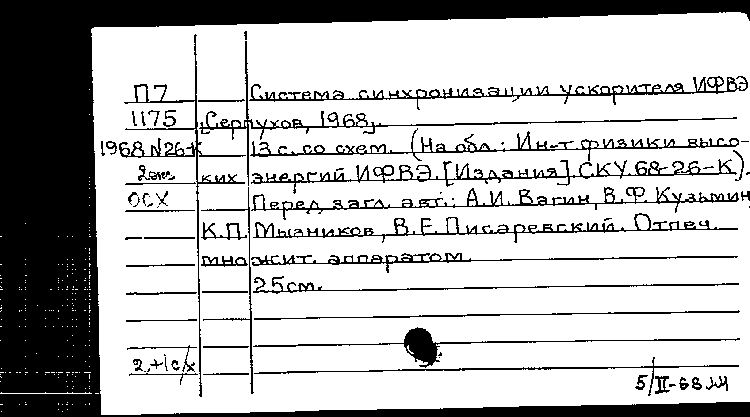 П7 Система синхронизации ускорителя ИФВЭ
1175 [Серпухов, 1968].
1968 N26-К 13 с. со схем. (На обл.: Ин-т физики высо-
2 экз ких энергий ИФВЭ. [Издания]. СКУ 68-26-К).
ОСХ Перед загл. авт.: А.И. Вагин, В.Ф. Кузьмин,
К.П. Мызников, В.Е. Писаревский. Отпеч.
множит. аппаратом.
25 см.
2+1 с/х
5/II-68